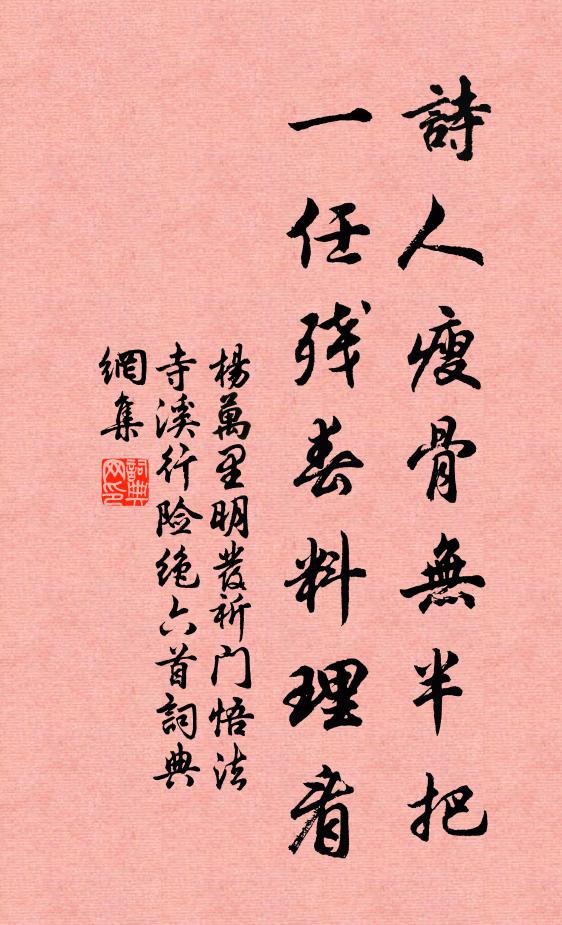 詩人瘦骨無半把
一任残春料理看
楊萬里明發祈門悟法
寺溪行险绝六首詞典
網集
詞典
网印